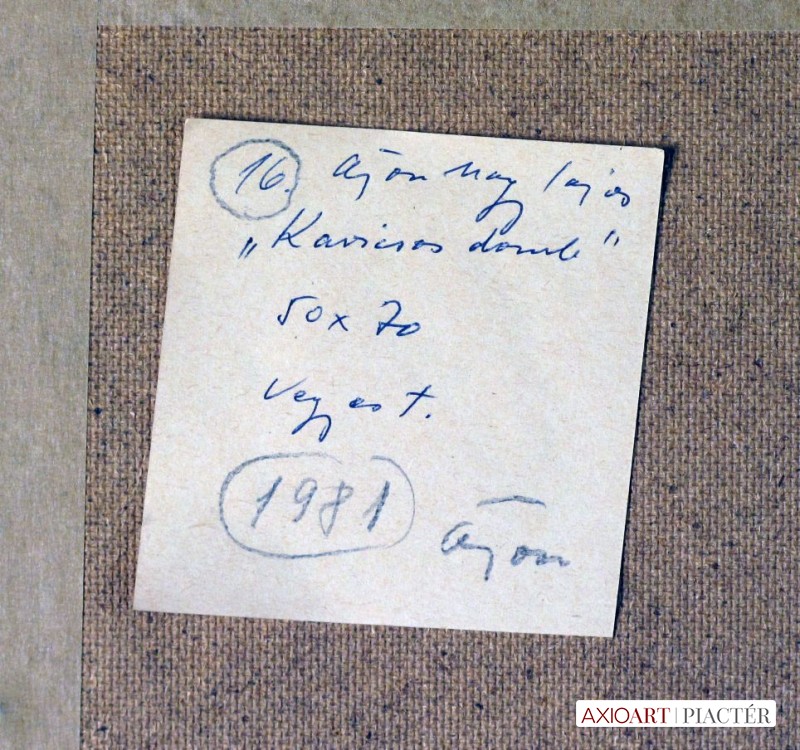 16. Ajon Nagy Lajos
„Kavicsos domb"
50x70
vegyes t.
1981
Ajon
AXIOART | PIACTÉR